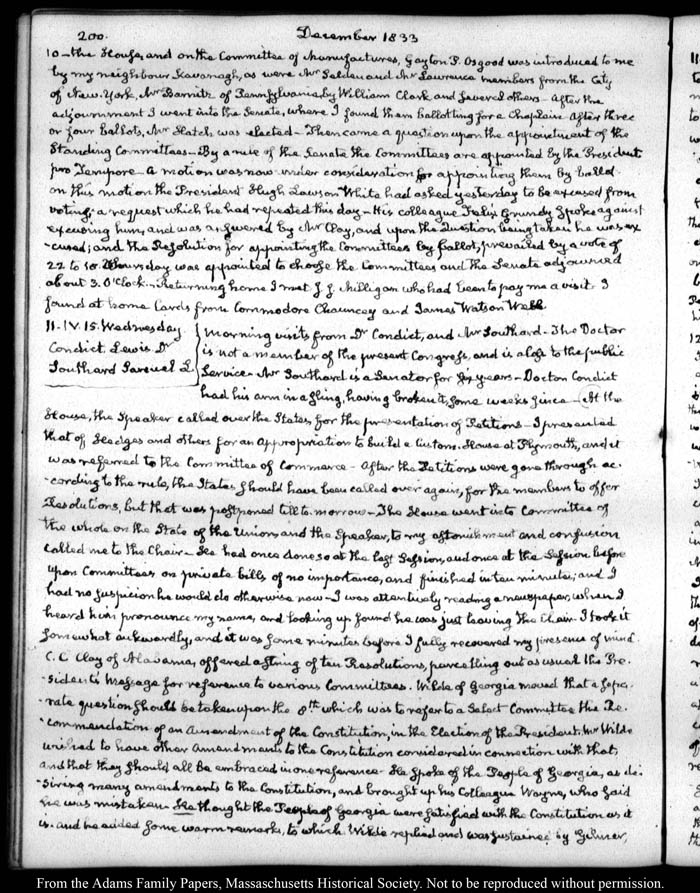 200.
December 1833
10 – the House, and on the Committee of Manufactures, Gayton P. Osgood was introduced to me
by my neighbour Kavanagh, as were Mr Selden and Mr Lawrence members from the City
of New-York, Mr Barnitz of Pennsylvania by William Clark and several others – After the
adjournment I went into the Senate, where I found them ballotting for a Chaplain. After three
or four ballots, Mr Hatch was elected – Then came a question upon the appointment of the
Standing Committees – By a rule of the Senate the Committees are appointed by the President
pro Tempore. A motion was now under consideration for appointing them by ballot
on this motion the President Hugh Lawson White had asked yesterday to be excused from
voting; a request which he had repeated this day – His colleague Felix Grundy spoke against
excusing him, and was answered by Mr Clay, and upon the question being taken he was ex
-cused; and the Resolution for appointing the Committees by ballot, prevailed by a vote of
22 to 18. Thursday was appointed to choose the Committees and the Senate adjourned
about 3. O'Clock – Returning home I met J. J. Milligan who had been to pay me a visit. I
found at home Cards from Commodore Chauncey and James Watson Webb
11. IV. 15. Wednesday
Condict Lewis Dr
Southard Samuel L.
Morning visits from Dr Condict, and Mr Southard – The Doctor
is not a member of the present Congress, and is a loss to the public
Service – Mr Southard is a Senator for six years – Doctor Condict
had his arm in a sling, having broken it, some weeks since – At the
House, the Speaker called over the States, for the presentation of Petitions – I presented
that of Hedges and others for an appropriation to build a Custom-House at Plymouth, and it
was referred to the Committee of Commerce – After the Petitions were gone through ac-
-cording to the rule, the States should have been called over again, for the members to offer
Resolutions, but that was postponed till to-morrow – The House went into Committee of
the whole on the State of the Union, and the Speaker, to my astonishment and confusion
called me to the Chair – He had once done so at the last Session, and once at the Session before
upon Committees on private bills of no importance, and finished in ten minutes, and I
had no suspicion he would do otherwise now – I was attentively reading a newspaper, when I
heard him pronounce my name, and looking up found he was just leaving the Chair. I took it
somewhat awkwardly, and it was some minutes before I fully recovered my presence of mind.
C. C. Clay of Alabama, offered a string of ten Resolutions, parcelling out as usual the Pre-
-sident's Message for reference to various Committees. Wilde of Georgia moved that a sepa-
-rate question should be taken upon the 8th which was to refer to a Select Committee the Re-
-commendation of an Amendment of the Constitution, in the Election of the President. Mr Wilde
wished to have other amendments to the Constitution considered in connection with that,
and that they should all be embraced in one reference – He spoke of the People of Georgia, as de-
-siring many amendments to the Constitution, and brought up his Colleague Wayne, who said
he was mistaken – He thought the People of Georgia were satisfied with the Constitution as it
is. and he added some warm remarks, to which Wilde replied and was sustained by Gilmer,
From the Adams Family Papers, Massachusetts Historical Society. Not to be reproduced without permission.